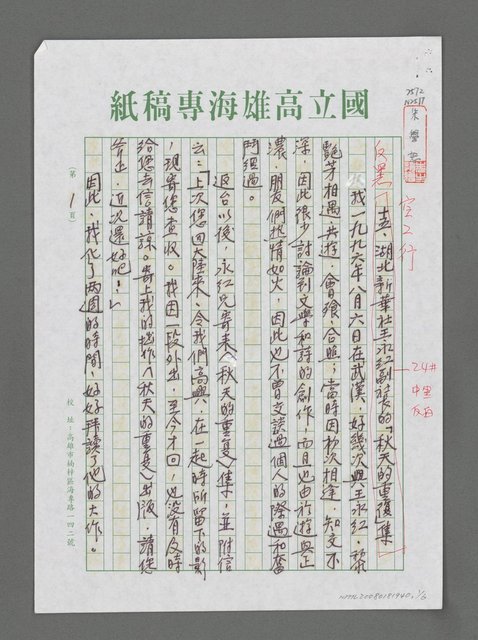 國立高雄海專稿紙
2572
朱學恕
反黑
空2行
壹、湖北新華社王永紅副裝的「秋天的重復」集
我一九九六年八月六日在武漢,好幾次與王永紅、黎
艷芳相遇共遊、會飧、合照;當時因初次相逢,知交不
深,因此很少討論到文學和詩的創作,而且也由於遊興正
濃,朋友們熱情如火,因此也不曾交談過個人的際遇和奮
鬥經過。
返台以後,永紅兄寄來《秋天的重复》集,並附信
云:「上次您回大陸來,令我們高興,在一起時所留下的影
,現寄您查收。我因一段外出,至今才回,也沒有及時
給您去信請諒。寄上我的拙作《秋天的重复》出版,請您
斧正,近況還好吧!」
因此,我化了兩週的時間,好好拜讀了他的大作。
24#
中黑
(第1頁)
校址:高雄市楠梓區海專路一四二號
NMTL20080181940, 1/3